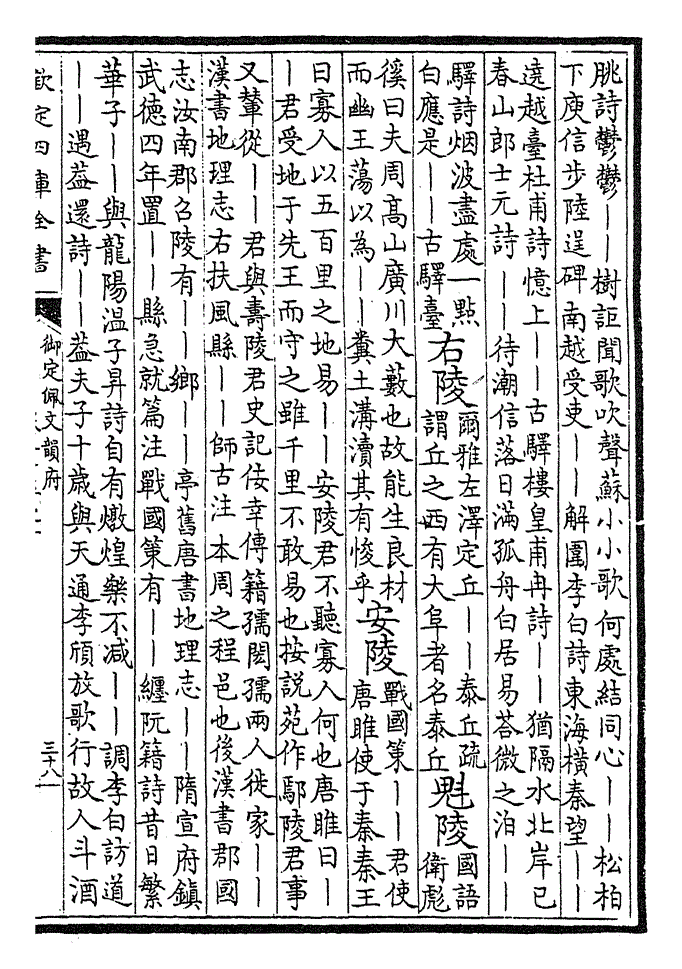 朓詩鬱鬱——樹詎聞歌吹聲蘇小小歌何處結同心——松柏
下庾信步陸逞碑南越受吏——解圍李白詩東海橫秦望——
遠越臺杜甫詩憶上——古驛樓皇甫冉詩——猶隔水北岸已
春山郎士元詩——待潮信落日滿孤舟白居易荅微之泊——
驛詩烟波盡處一點
白應是——古驛臺
右陵
爾雅左澤定丘——泰丘疏
謂丘之西有大阜者名泰丘
魁陵
國語
衛彪
徯曰夫周髙山廣川大藪也故能生良材
而幽王蕩以為——糞土溝瀆其有悛乎
安陵
戰國策——君使
唐雎使于秦秦王
曰寡人以五百里之地易——安陵君不聽寡人何也唐雎曰—
—君受地于先王而守之雖千里不敢易也按説苑作鄢陵君事
又輦從——君與壽陵君史記佞幸傳籍孺閎孺兩人徙家——
漢書地理志右扶風縣——師古注本周之程邑也後漢書郡國
志汝南郡召陵有——鄉——亭舊唐書地理志——隋宣府鎮
武德四年置——縣急就篇注戰國策有——纏阮籍詩昔日繁
華子——與龍陽温子昇詩自有燉煌樂不减——調李白訪道
——遇葢還詩——葢夫子十歲與天通李頎放歌行故人斗酒
欽定四庫全書
御定佩文韻府
三十八